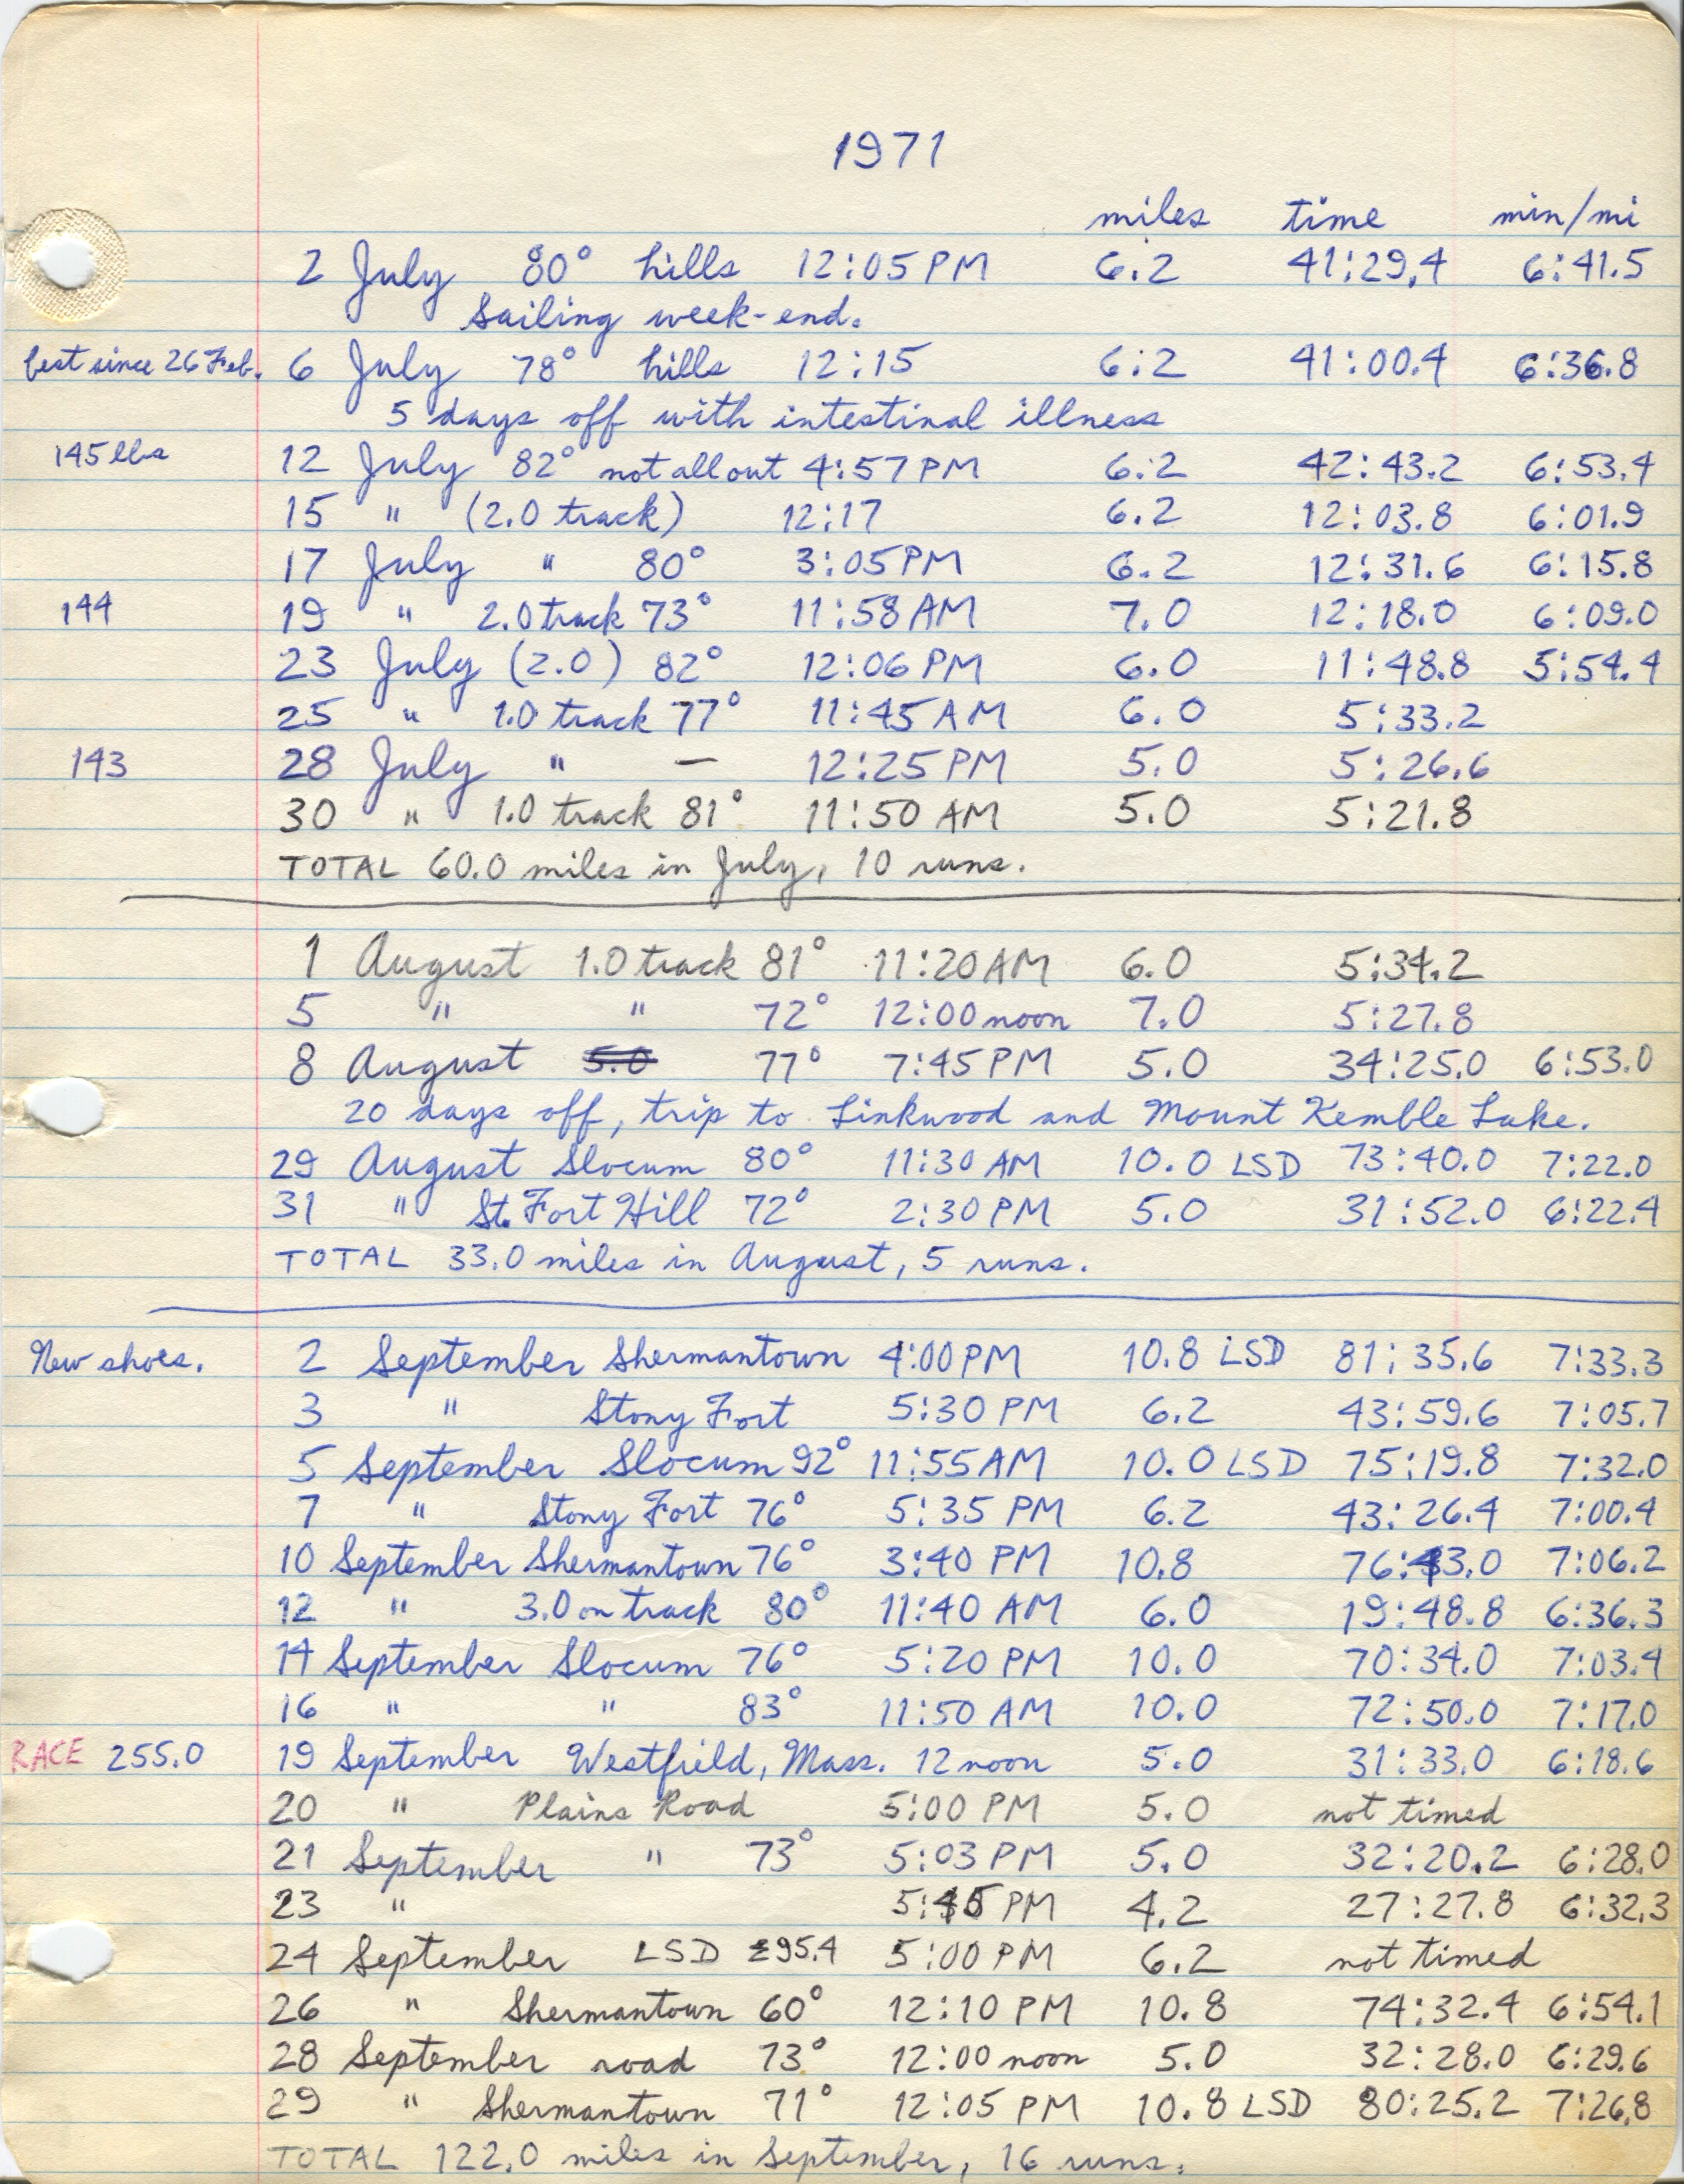 1971
miles time min/mi
2 July 80° hills 12:05 PM 6.2 41:29.4 6:41.5
Sailing week-end.
best since 26 Feb. 6 July 78° hills 12:15 6.2 41:00.4 6:36.8
5 days off with intestinal illness
145 lbs 12 July 82° not all out 4:57 PM 6.2 42:43.2 6:53.4
15 " (2.0 track) 12:17 6.2 12:03.8 6:01.9
17 July " 80° 3:05 PM 6.2 12:31.6 6:15.8
144 19 " 2.0 track 73° 11:58 AM 7.0 12:18.0 6:09.0
23 July (2.0) 82° 12:06 PM 6.0 11:48.8 5:54.4
25 " 1.0 track 77° 11:45 AM 6.0 5:33.2
143 28 July " — 12:25 PM 5.0 5:26.6
30 " 1.0 track 81° 11:50 AM 5.0 5:21.8
TOTAL 60.0 miles in July, 10 runs.
1 August 1.0 track 81° 11:20 AM 6.0 5:34.2
5 " " 72° 12:00 noon 7.0 5:27.8
8 August 5.0 77° 7:45 PM 5.0 34:25.0 6:53.0
20 days off, trip to Linkwood and Mount Kemble Lake.
29 August Slocum 80° 11:30 AM 10.0 LSD 73:40.0 7:22.0
31 " St. Fort Hill 72° 2:30 PM 5.0 31:52.0 6:22.4
TOTAL 33.0 miles in August, 5 runs.
New shoes. 2 September Shermantown 4:00 PM 10.8 LSD 81:35.6 7:33.3
3 " Stony Fort 5:30 PM 6.2 43:59.6 7:05.7
5 September Slocum 92° 11:55 AM 10.0 LSD 75:19.8 7:32.0
7 " Stony Fort 76° 5:35 PM 6.2 43:26.4 7:00.4
10 September Shermantown 76° 3:40 PM 10.8 76:43.0 7:06.2
12 " 3.0 on track 80° 11:40 AM 6.0 19:48.8 6:36.3
14 September Slocum 76° 5:20 PM 10.0 70:34.0 7:03.4
16 " " 83° 11:50 AM 10.0 72:50.0 7:17.0
RACE 255.0 19 September Westfield, Mass. 12 noon 5.0 31:33.0 6:18.6
20 " Plains Road 5:00 PM 5.0 not timed
21 September " 73° 5:03 PM 5.0 32:20.2 6:28.0
23 " PM 4.2 27:27.8 6:32.3
24 September LSD 5:00 PM 6.2 not timed
26 " Shermantown 60° 12:10 PM 10.8 74:32.4 6:54.1
28 September road 73° 12:00 noon 5.0 32:28.0 6:29.6
29 " Shermantown 71° 12:05 PM 10.8 LSD 80:25.2 7:26.8
TOTAL 122.0 miles in September, 16 runs.